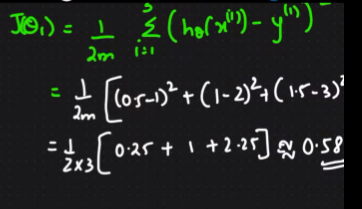 J(θ₁) = 1/2m 3 Σ i=1 (hθ(x⁽ⁱ⁾) - y⁽ⁱ⁾)
= 1/2m [(0.5-1)² + (1-2)² + (1.5-3)²
= 1/2×3 [0.25 + 1 + 2.25] ≈ 0.58